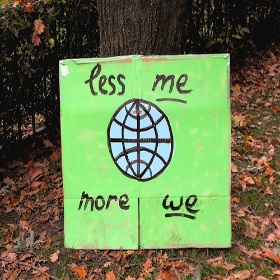 less me
more we